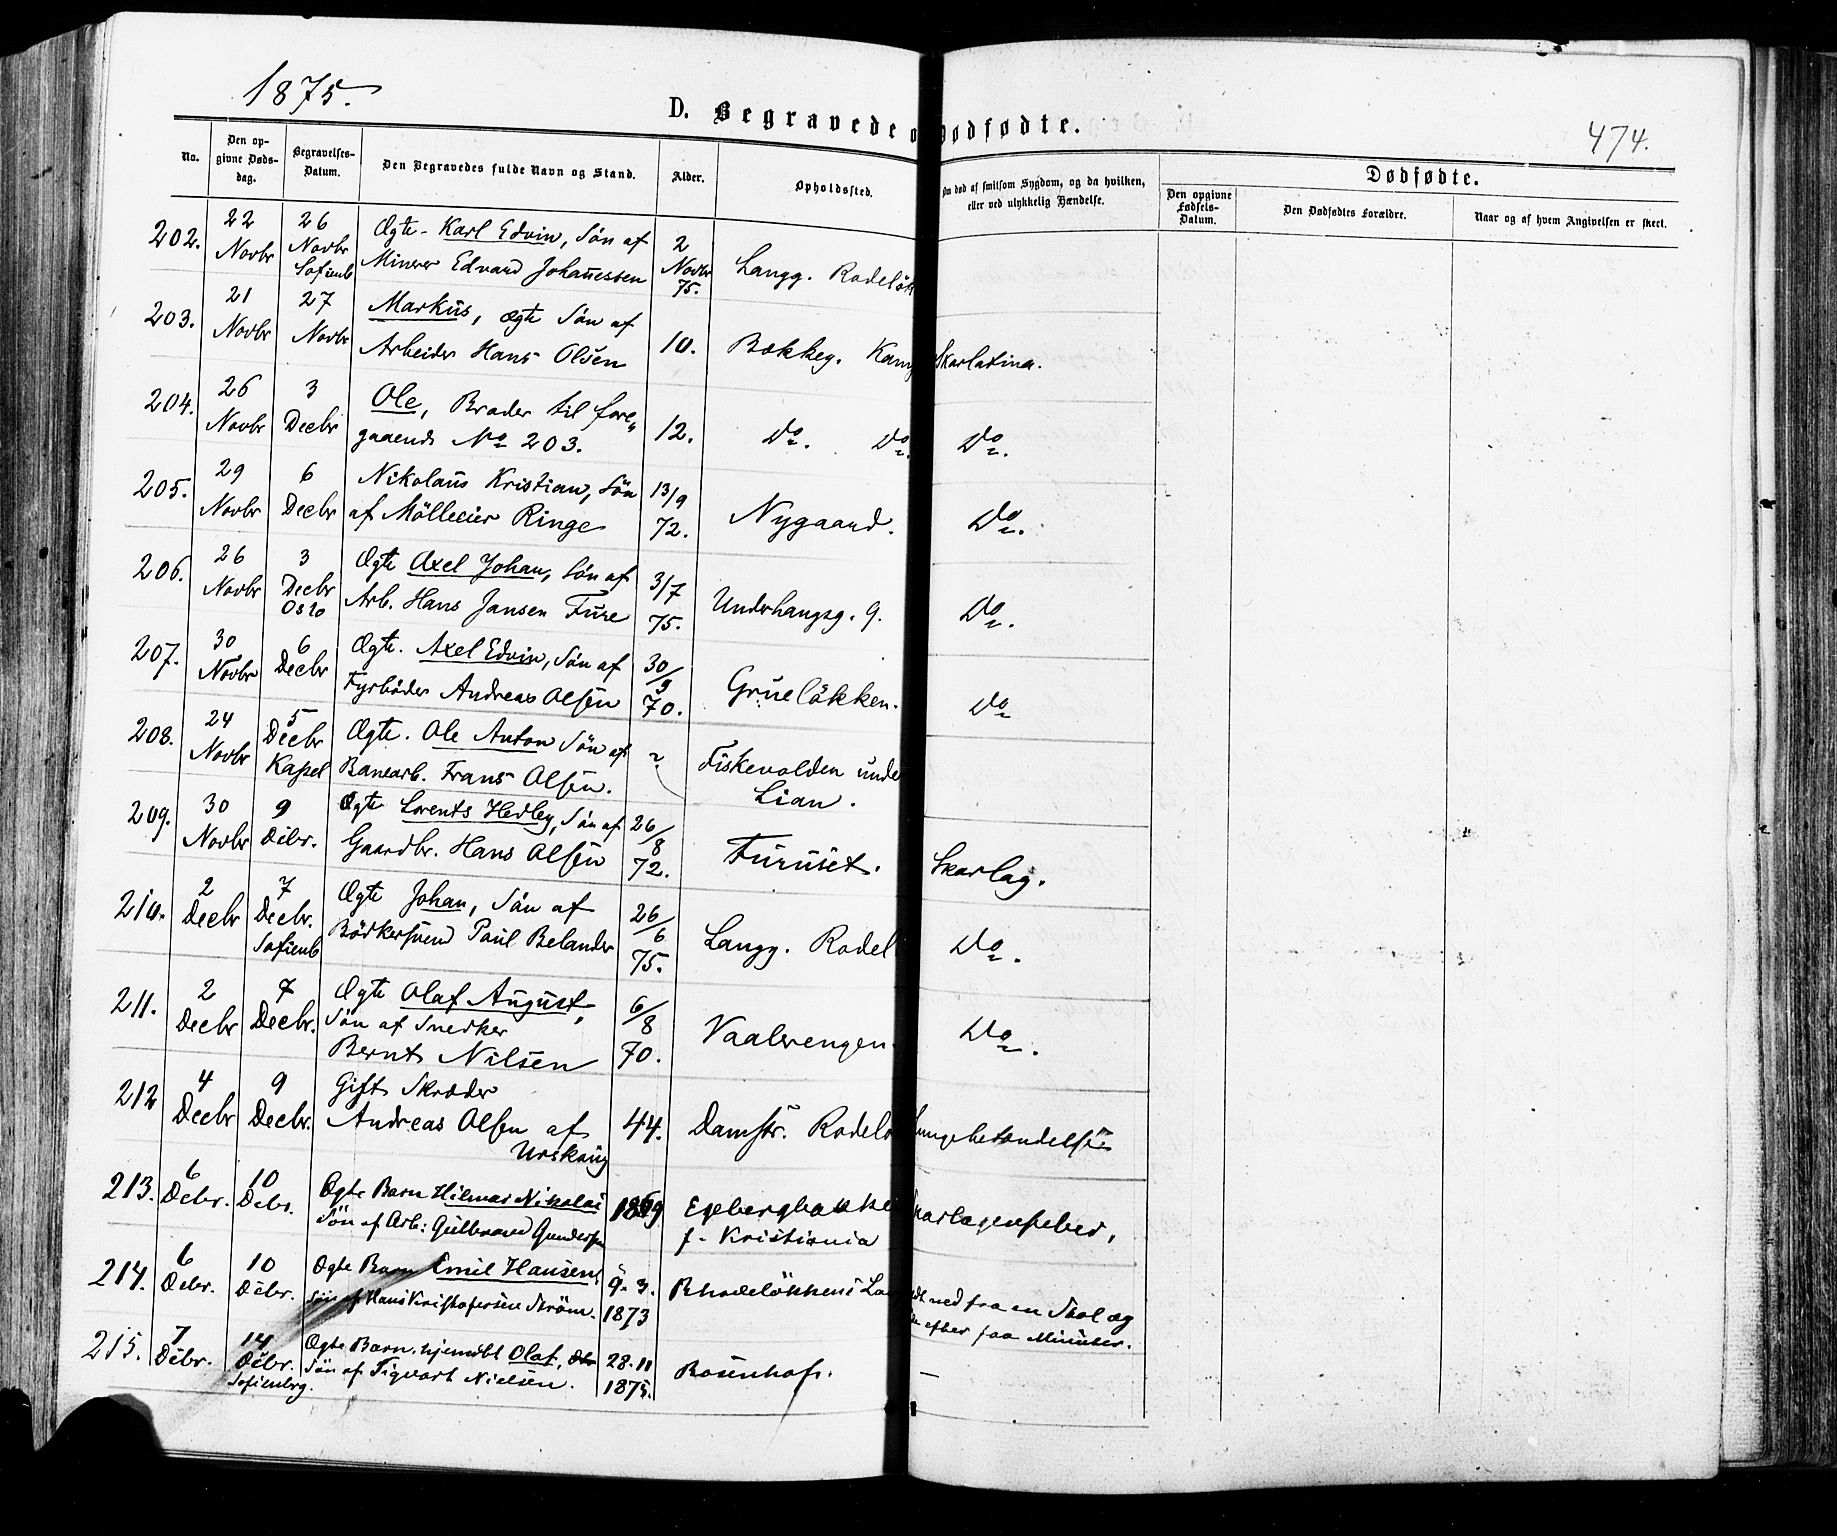 1875.
D. Begravede o
Dødfødte.
474.
No.
Den op-
givne Døds-
dag.
Begravelses-
Datum.
Den Begravedes fulde Navn og Stand.
Alder.
Opholdssted.
Om død af smitsom Sygdom, og da hvilken,
eller ved ulykkelig Hændelse.
Dødfødte.
Den opgivne
Fødsels-
Datum.
Den Dødfødtes Forældre.
Naar og af hvem Angivelsen er skeet.
202. 22 Novbr 26 Novbr Sofienb
Ægte Karl Edvin, Søn af
Minerer Edvard Johanessen
2 Novbr 75. Langg. Rodeløk
203. 21 Novbr 27 Novbr
Markus, ægte Søn af
Arbeider Hans Olsen
10. Bækkeg. Kamp Skarlatina.
204. 26 Novbr 3 Decbr
Ole, Broder til fore„
gaaende No 203.
12. Do. Do. Do.
205. 29 Novbr 6 Decbr
Nikolaus Kristian, Søn
af Mølleeier Ringe
13/9 72. Nygaard. Do.
206. 26 Novbr 3 Decbr Oslo
Ægte Axel Johan, Søn af
Arb. Hans Jansen Fure
3/7 75. Underhaugsg. 9. Do.
207. 30 Novbr 6 Decbr
Ægte. Axel Edvin, Søn af
Fyrbøder Andreas Olsen
30/9 70. Grueløkken. Do
208. 24 Novbr 5 Decbr Kapel
Ægte. Ole Anton Søn af
Banearb. Frans Olsen.
? Fiskevolden unde
Lian.
209. 30 Novbr 9 Decbr.
Ægte Lorents Hedley, Søn af
Gaardbr. Hans Olsen
26/8 72. Furuset. Skarlag.
210. 2 Decbr 7 Decbr. Sofienb
Ægte Johan, Søn af
Bødkersvend Paul Belander
26/6 75. Langg. Rodel Do.
211. 2 Decbr 7 Decbr.
Ægte Olaf August,
Søn af Snedker
Bernt Nilsen
6/8 70. Vaalerengen. Do.
212 4 Decbr 9 Decbr.
Gift Skræder
Andreas Olsen af
Urskoug
44. Damstr. Rodelø Lungebetændelse
213. 6 Decbr. 10 Decbr.
Ægte Barn Hilmar Nikolai
Søn af Arb: Gulbrand Gundersen
1869 Egebergbakken
f. Kristiania
karlagensfeber,
214. 6 Decbr. 10 Decbr.
Ægte Barn Emil Hansen,
Søn af Hans Kristofersen Strøm.
9. 3. 1873 Rhodeløkkens La
dt ned fra en Stol og
efter faa Minuter.
215. 7 Decbr. 14 Decbr. Sofienberg.
Ægte Barn. hjemdbt Olaf,
Søn af Sigvart Nielsen.
28. 11 1875. Rosenhof. —